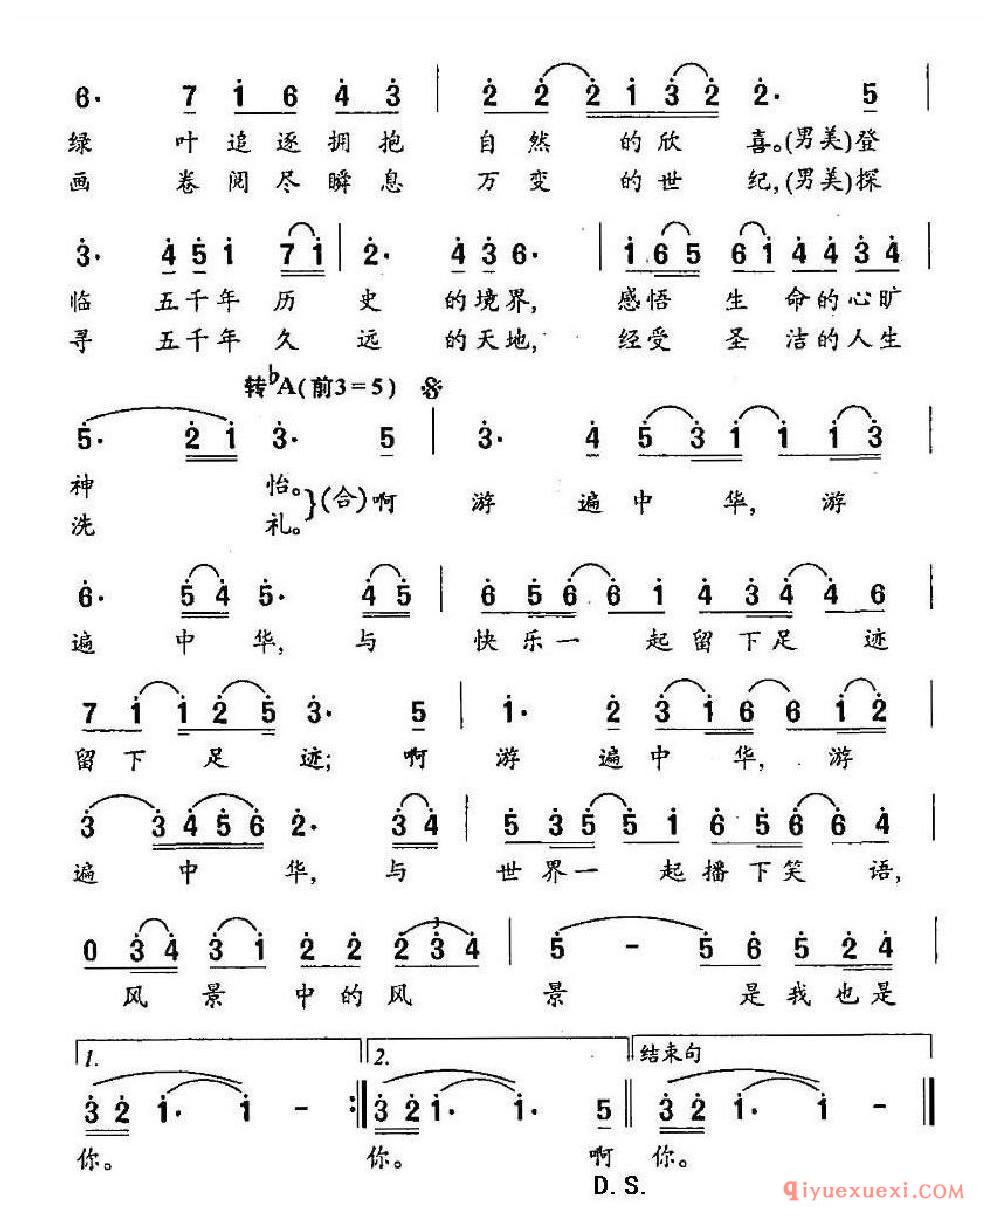 6· 7 1 6 4 3 | 2 2 2 1 3 2 2· 5 |
绿 叶追逐拥抱 自然 的欣 喜。(男美)登
画 卷阅尽瞬息 万变 的世 纪,(男美)探
3· 4 5 1 7 1 | 2· 4 3 6· | 1 6 5 6 1 4 4 3 4 |
临 五千年 历 史 的境界, 感悟 生 命的心旷
寻 五千年 久 远 的天地, 经受 圣 洁的人生
转♭A(前3=5) 𝄋
5· 2 1 3· 5 | 3· 4 5 3 1 1 1 3 |
神 怡。}(合)啊 游 遍中 华,游
洗 礼。
6· 5 4 5· 4 5 | 6 5 6 6 1 4 3 4 4 6 |
遍 中 华, 与 快乐一 起留下足 迹
7 1 1 2 5 3· 5 | 1· 2 3 1 6 6 1 2 |
留下 足 迹; 啊 游 遍中 华,游
3 3 4 5 6 2· 3 4 | 5 3 5 5 1 6 5 6 6 4 |
遍 中 华, 与 世界一 起播下笑 语,
0 3 4 3 1 2 2 2 3 4 | 5 - 5 6 5 2 4 |
3
风 景 中的风 景 是我也是
1. 2. 结束句
3 2 1· 1 - :‖ 3 2 1· 1· 5 ‖ 3 2 1· 1 - ‖
你。 你。 啊 你。
D. S.
qiyuexuexi.COM